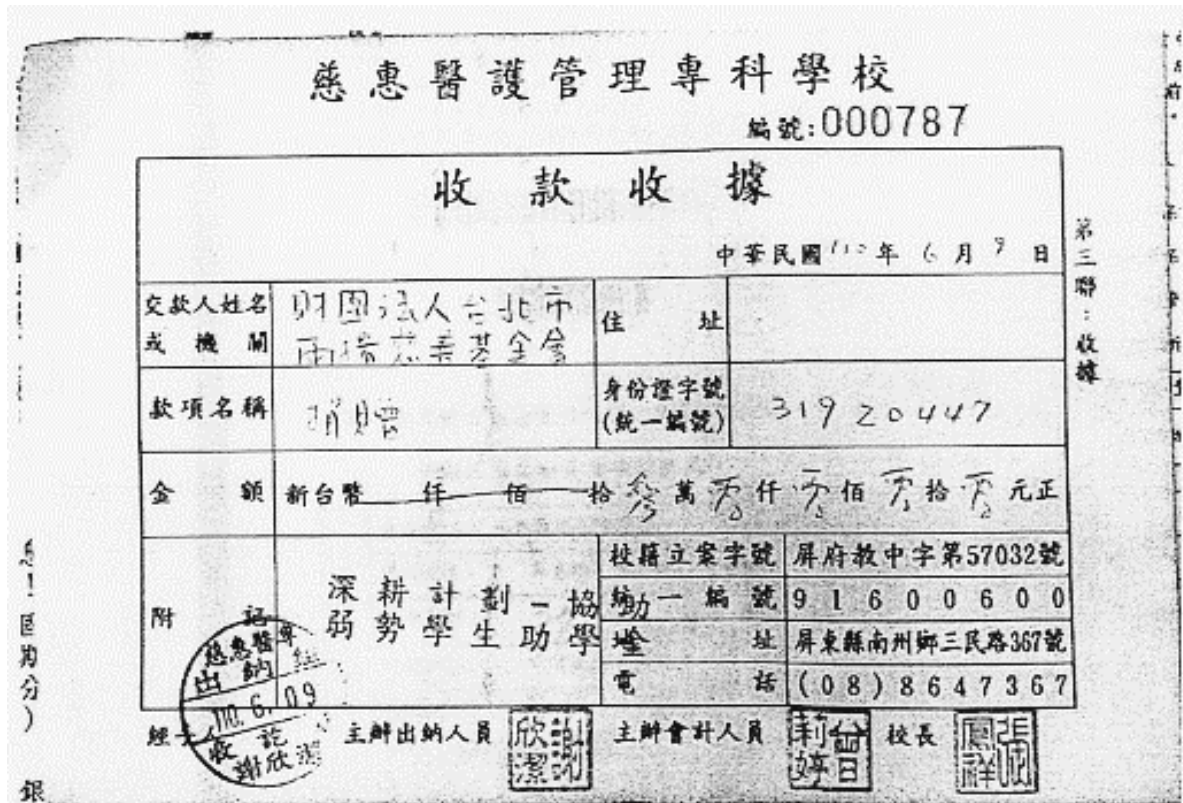 慈惠醫護管理專科學校
編號:000787
收款收據
中華民國110年6月9日
第三聯:收據
交款人姓名或機關
財團法人台北市
慈善基金會
住址
款項名稱
捐贈
身份證字號
(統一編號)
31920447
金額
新台幣 仟 佰 拾 參萬零仟零佰零拾零元正
附記
深耕計劃-協助
弱勢學生助學金
校籍立案字號 屏府教中字第57032號
統一編號 91600600
地址 屏東縣南州鄉三民路367號
電話 (08)8647367
慈惠醫專
出納
110. 6. 09
收訖
謝欣潔
經手人
主辦出納人員
謝欣潔
主辦會計人員
曾莉婷
校長
張鳳祥
銀